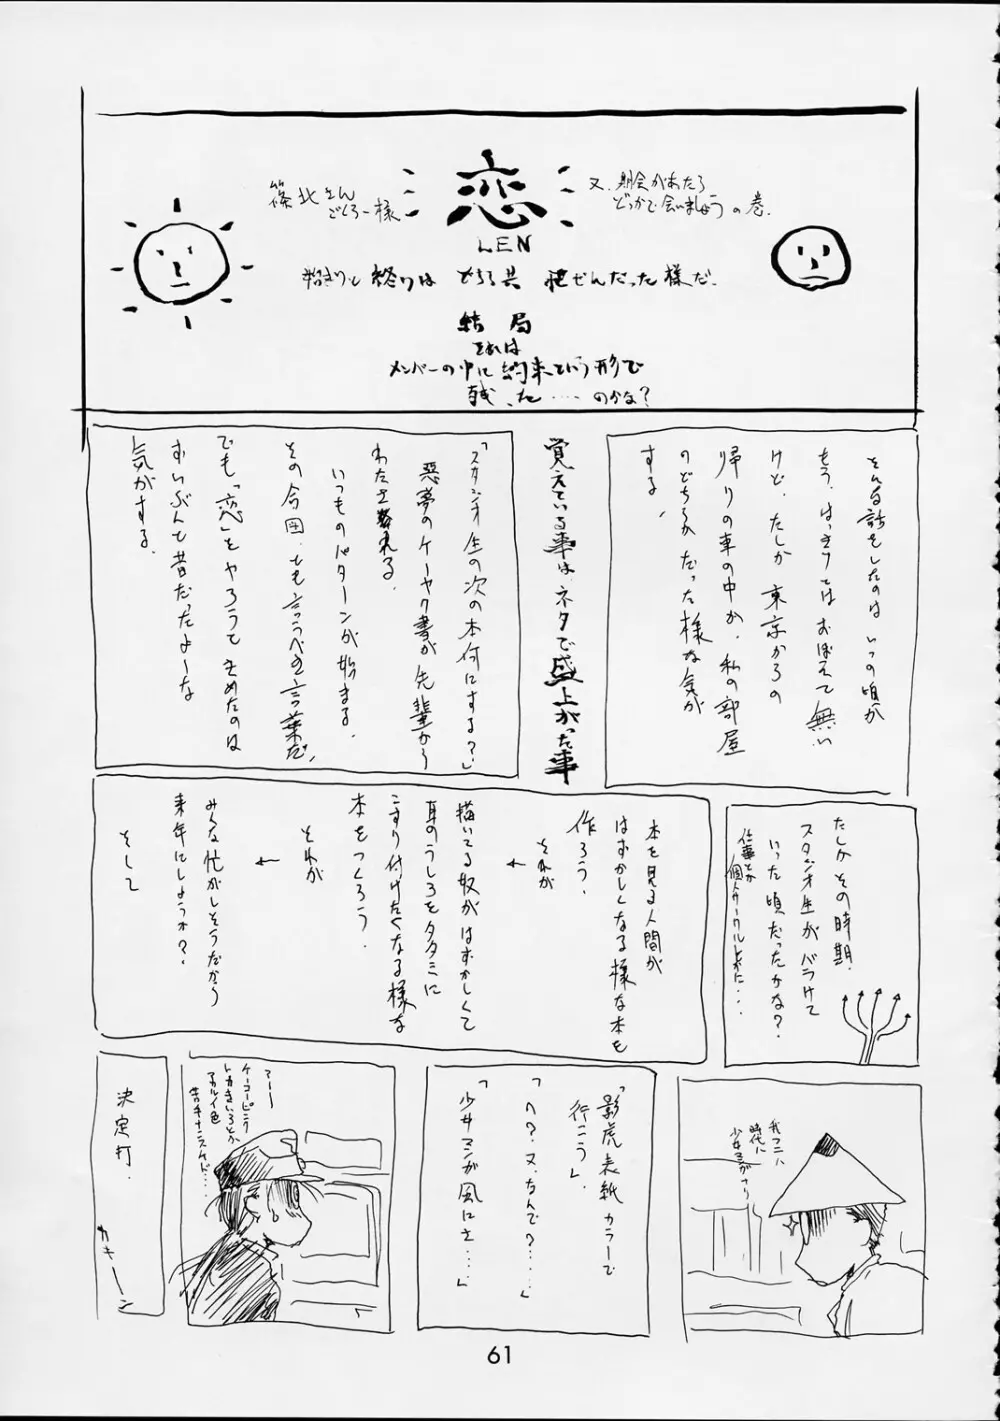 恋
LEN
又、機会があたら
どっかで会いましょうの巻.
篠北さん
ごくろー様
始まりと終りは どちら共 徒ぜんだった様だ.
結局
それは
メンバーの中に約束という形で
残った……のかな?
そんな話をしたのは いつの頃か
もう、はっきりてはおぼえて無い
けど、たしか 東京からの
帰りの車の中か、私の部屋
のどちらかだった様な気が
する。
覚えている事は、ネタで盛上がった事
「スタジオ生の次の本何にする?」
悪夢のケーヤク書が先輩から
わたされる.
いつものパターンが始まる.
その合図.とも言うべき言葉だ,
でも「恋」をやろうてきめたのは
ずいぶんと昔だったよーな
気がする.
たしかその時期.
スタジオ生がバラけて
いった頃だったかな?
仕事とか
個人サークルとかに…
本を見る人間が
はずかしくなる様な本を
作ろう.
それが
↓
描いてる奴がはずかしくて
耳のうしろをタタミに
こすり付けたくなる様な
本をつくろう.
それが
↓
みんな忙がしそうだから
来年にしようか?.
そして
我フニハ
時代ハ
少女マンガナリ
「影虎表紙カラーで
行こう」.
「へ?.又.なんで?……」
「少女マンガ風にさ……」
えーー
ケーコーピンク
トカきいろとか
アカルイ色
苦手ナニスケド……
決定打.
カキーーン
61